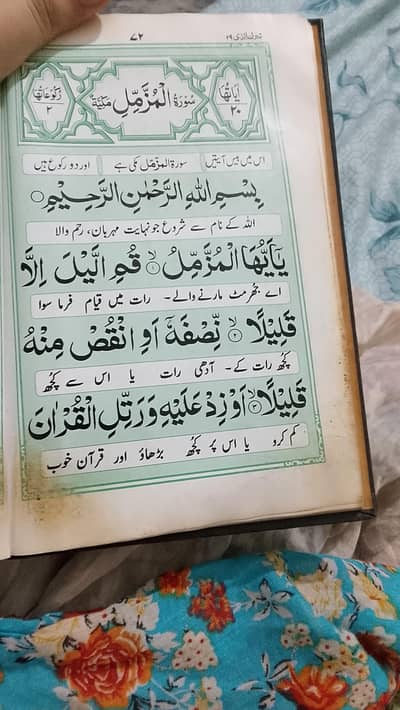 تبرك الذى ٢٩ ٧٢
اٰيَاتُهَا ٢٠ سُوْرَةُ الْمُزَّمِّلِ مَكِّيَّةٌ رُكُوْعَاتُهَا ٢
اس میں بیس آیتیں سورۃ المزمّل مکی ہے اور دو رکوع ہیں
بِسْمِ اللّٰهِ الرَّحْمٰنِ الرَّحِيْمِ
اللہ کے نام سے شروع جو نہایت مہربان، رحم والا
يٰۤاَيُّهَا الْمُزَّمِّلُ ۙ‏﴿۱﴾ قُمِ الَّيْلَ اِلَّا
اے جھرمٹ مارنے والے۔ رات میں قیام فرما سوا
قَلِيْلًا ۙ‏﴿۲﴾ نِّصْفَهٗۤ اَوِ انْقُصْ مِنْهُ
کچھ رات کے۔ آدھی رات یا اس سے کچھ
قَلِيْلًا ۙ‏﴿۳﴾ اَوْ زِدْ عَلَيْهِ وَ رَتِّلِ الْقُرْاٰنَ
کم کرو یا اس پر کچھ بڑھاؤ اور قرآن خوب